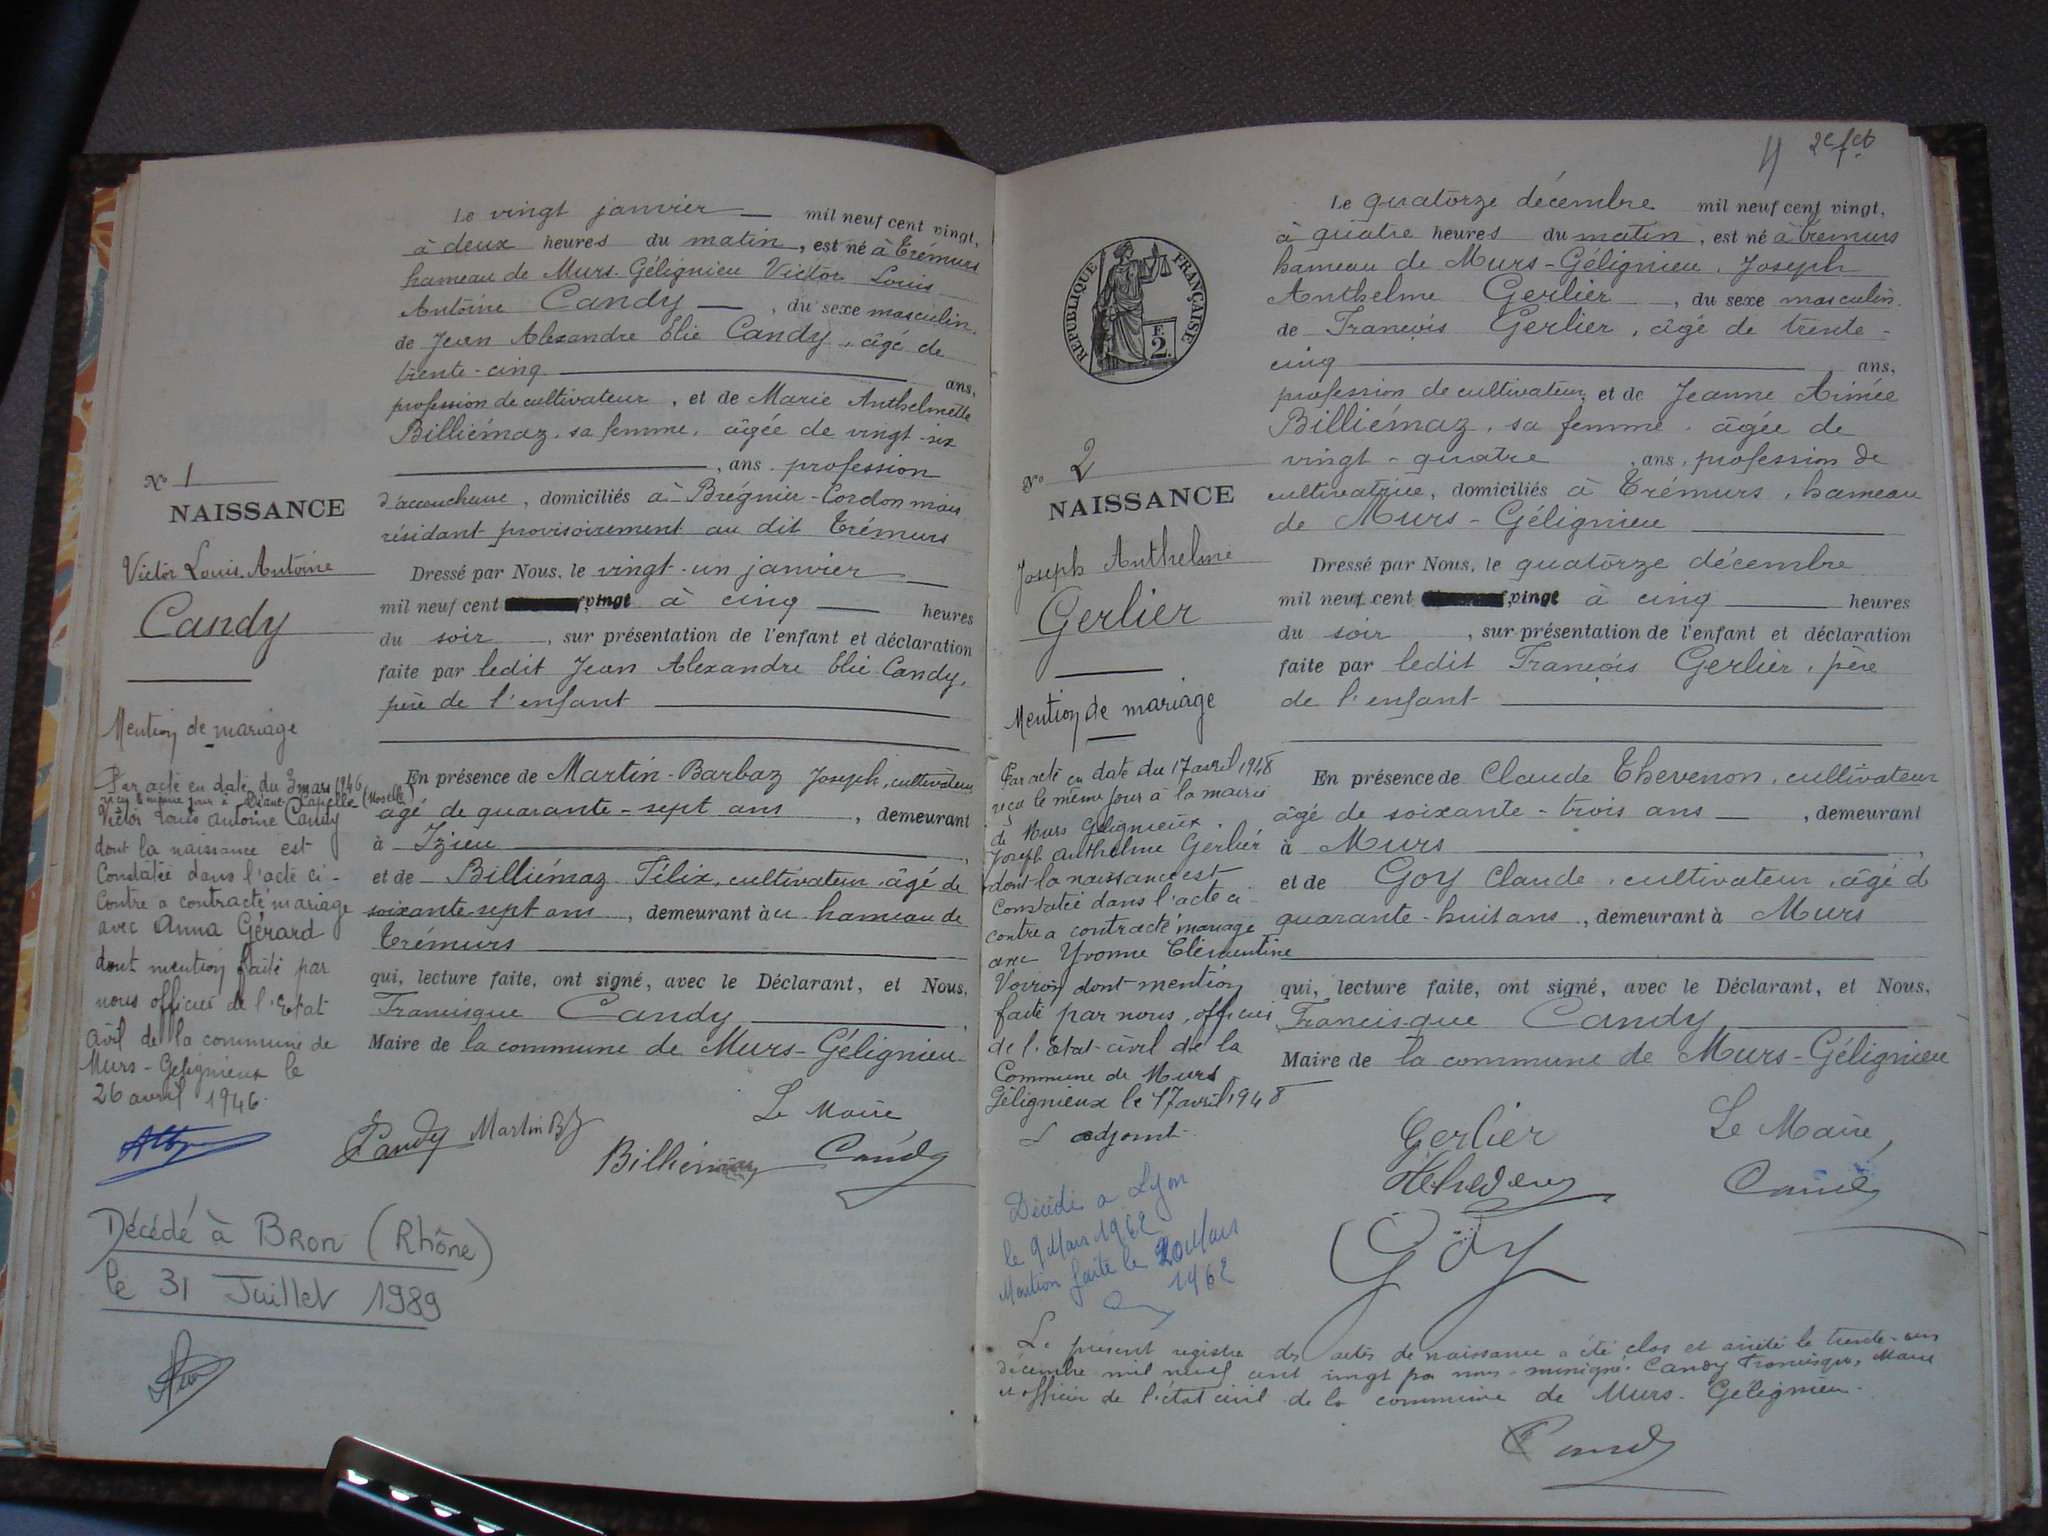 Le vingt janvier — mil neuf cent vingt,
à deux heures du matin, est né à Trémurs
hameau de Murs-Gélignieu Victor Louis
Antoine Candy —, du sexe masculin,
de Jean Alexandre Elie Candy, âgé de
trente-cinq — ans,
profession de cultivateur, et de Marie Anthelmette
Billiémaz, sa femme, âgée de vingt-six
—, ans, profession
d'accoucheuse, domiciliés à Brégnier-Cordon mais
résidant provisoirement au dit Trémurs
Dressé par Nous, le vingt-un janvier —
mil neuf cent vingt à cinq — heures
du soir —, sur présentation de l'enfant et déclaration
faite par ledit Jean Alexandre Elie Candy,
père de l'enfant —
En présence de Martin-Barbaz Joseph, cultivateur
âgé de quarante-sept ans, demeurant
à Izieu —,
et de Billiémaz Félix, cultivateur, âgé de
soixante-sept ans, demeurant au hameau de
Trémurs —
qui, lecture faite, ont signé, avec le Déclarant, et Nous,
Francisque Candy —,
Maire de la commune de Murs-Gélignieu
Le Maire
Candy Martin Bz
Billiémaz Candy
No 1
NAISSANCE
Victor Louis Antoine
Candy
Mention de mariage
Par acte en date du 3 mars 1946
reçu le même jour à Capelle (Moselle)
Victor Louis Antoine Candy
dont la naissance est
Constatée dans l'acte ci-
contre a contracté mariage
avec Anna Gérard
dont mention faite par
nous officier de l'Etat
Civil de la commune de
Murs-Gelignieux le
26 avril 1946.
Décédé à Bron (Rhône)
le 31 Juillet 1989
4 2e fct
RÉPUBLIQUE FRANÇAISE
F.
2.
Le quatorze décembre mil neuf cent vingt,
à quatre heures du matin, est né à Trémurs
hameau de Murs-Gélignieu, Joseph
Anthelme Gerlier —, du sexe masculin
de François Gerlier, âgé de trente-
cinq — ans,
profession de cultivateur, et de Jeanne Aimée
Billiémaz, sa femme, âgée de
vingt-quatre, ans, profession de
cultivatrice, domiciliés à Trémurs, hameau
de Murs-Gélignieu —
Dressé par Nous, le quatorze décembre
mil neuf cent vingt à cinq — heures
du soir, sur présentation de l'enfant et déclaration
faite par ledit François Gerlier, père
de l'enfant —
En présence de Claude Thevenon, cultivateur
âgé de soixante-trois ans —, demeurant
à Murs —,
et de Goy Claude, cultivateur, âgé d
quarante-huit ans, demeurant à Murs
qui, lecture faite, ont signé, avec le Déclarant, et Nous,
Francisque Candy —
Maire de la commune de Murs-Gélignieu
Gerlier Le Maire,
Candy
Goy
No 2
NAISSANCE
Joseph Anthelme
Gerlier
Mention de mariage
Par acte en date du 17 avril 1948
reçu le même jour à la mairie
de Murs Gélignieux,
Joseph Anthelme Gerlier
dont la naissance est
Constatée dans l'acte ci-
contre a contracté mariage
avec Yvonne Clémentine
Voiron dont mention
faite par nous, officier
de l'Etat-civil de la
Commune de Murs
Gélignieux le 17 avril 1948
L'adjoint
Décédé à Lyon
le 9 Mars 1962
Mention faite le 20 Mars
1962
Le présent registre des actes de naissance a été clos et arrêté le trente-un
décembre mil neuf cent vingt par nous soussigné Candy Francisque, Maire
et officier de l'état civil de la commune de Murs-Gélignieu.
Candy